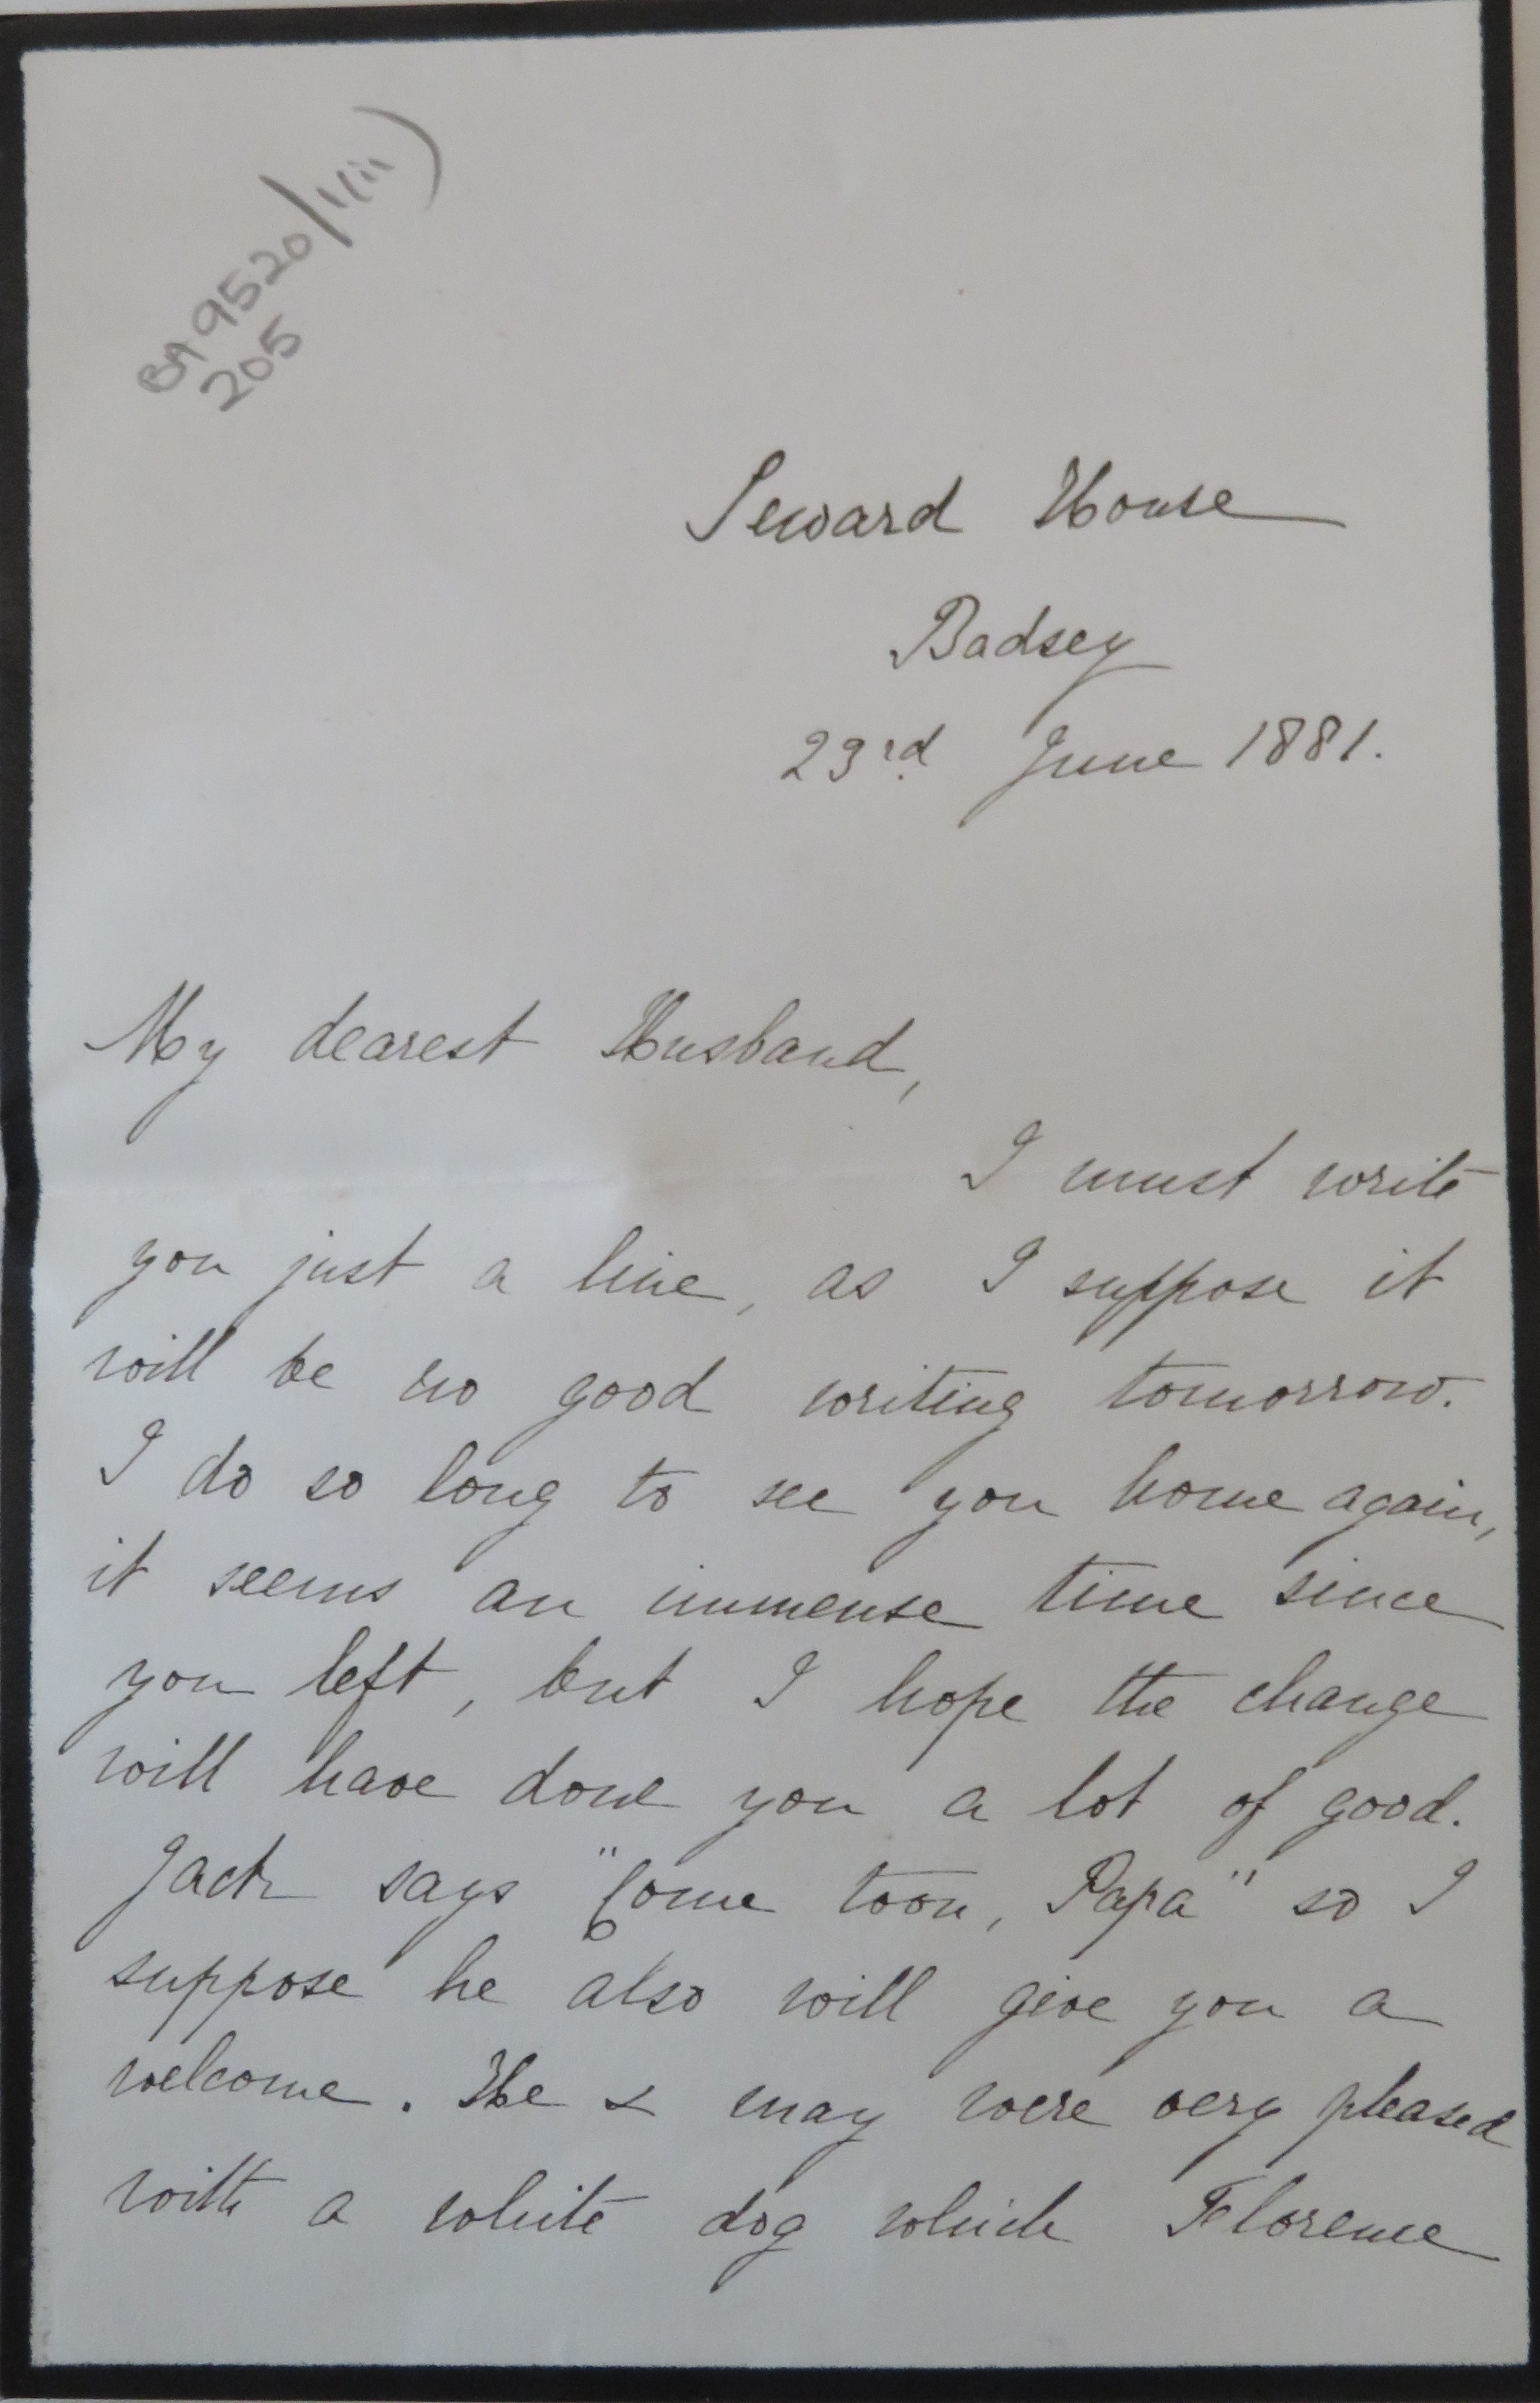 BA 9520/1(ii)
205
Seward House
Badsey
23rd June 1881.
My dearest Husband,
I must write
you just a line, as I suppose it
will be no good writing tomorrow.
I do so long to see you home again,
it seems an immense time since
you left, but I hope the change
will have done you a lot of good.
Jack says "Come toon, Papa" so I
suppose he also will give you a
welcome. He & may were very pleased
with a white dog which Florence